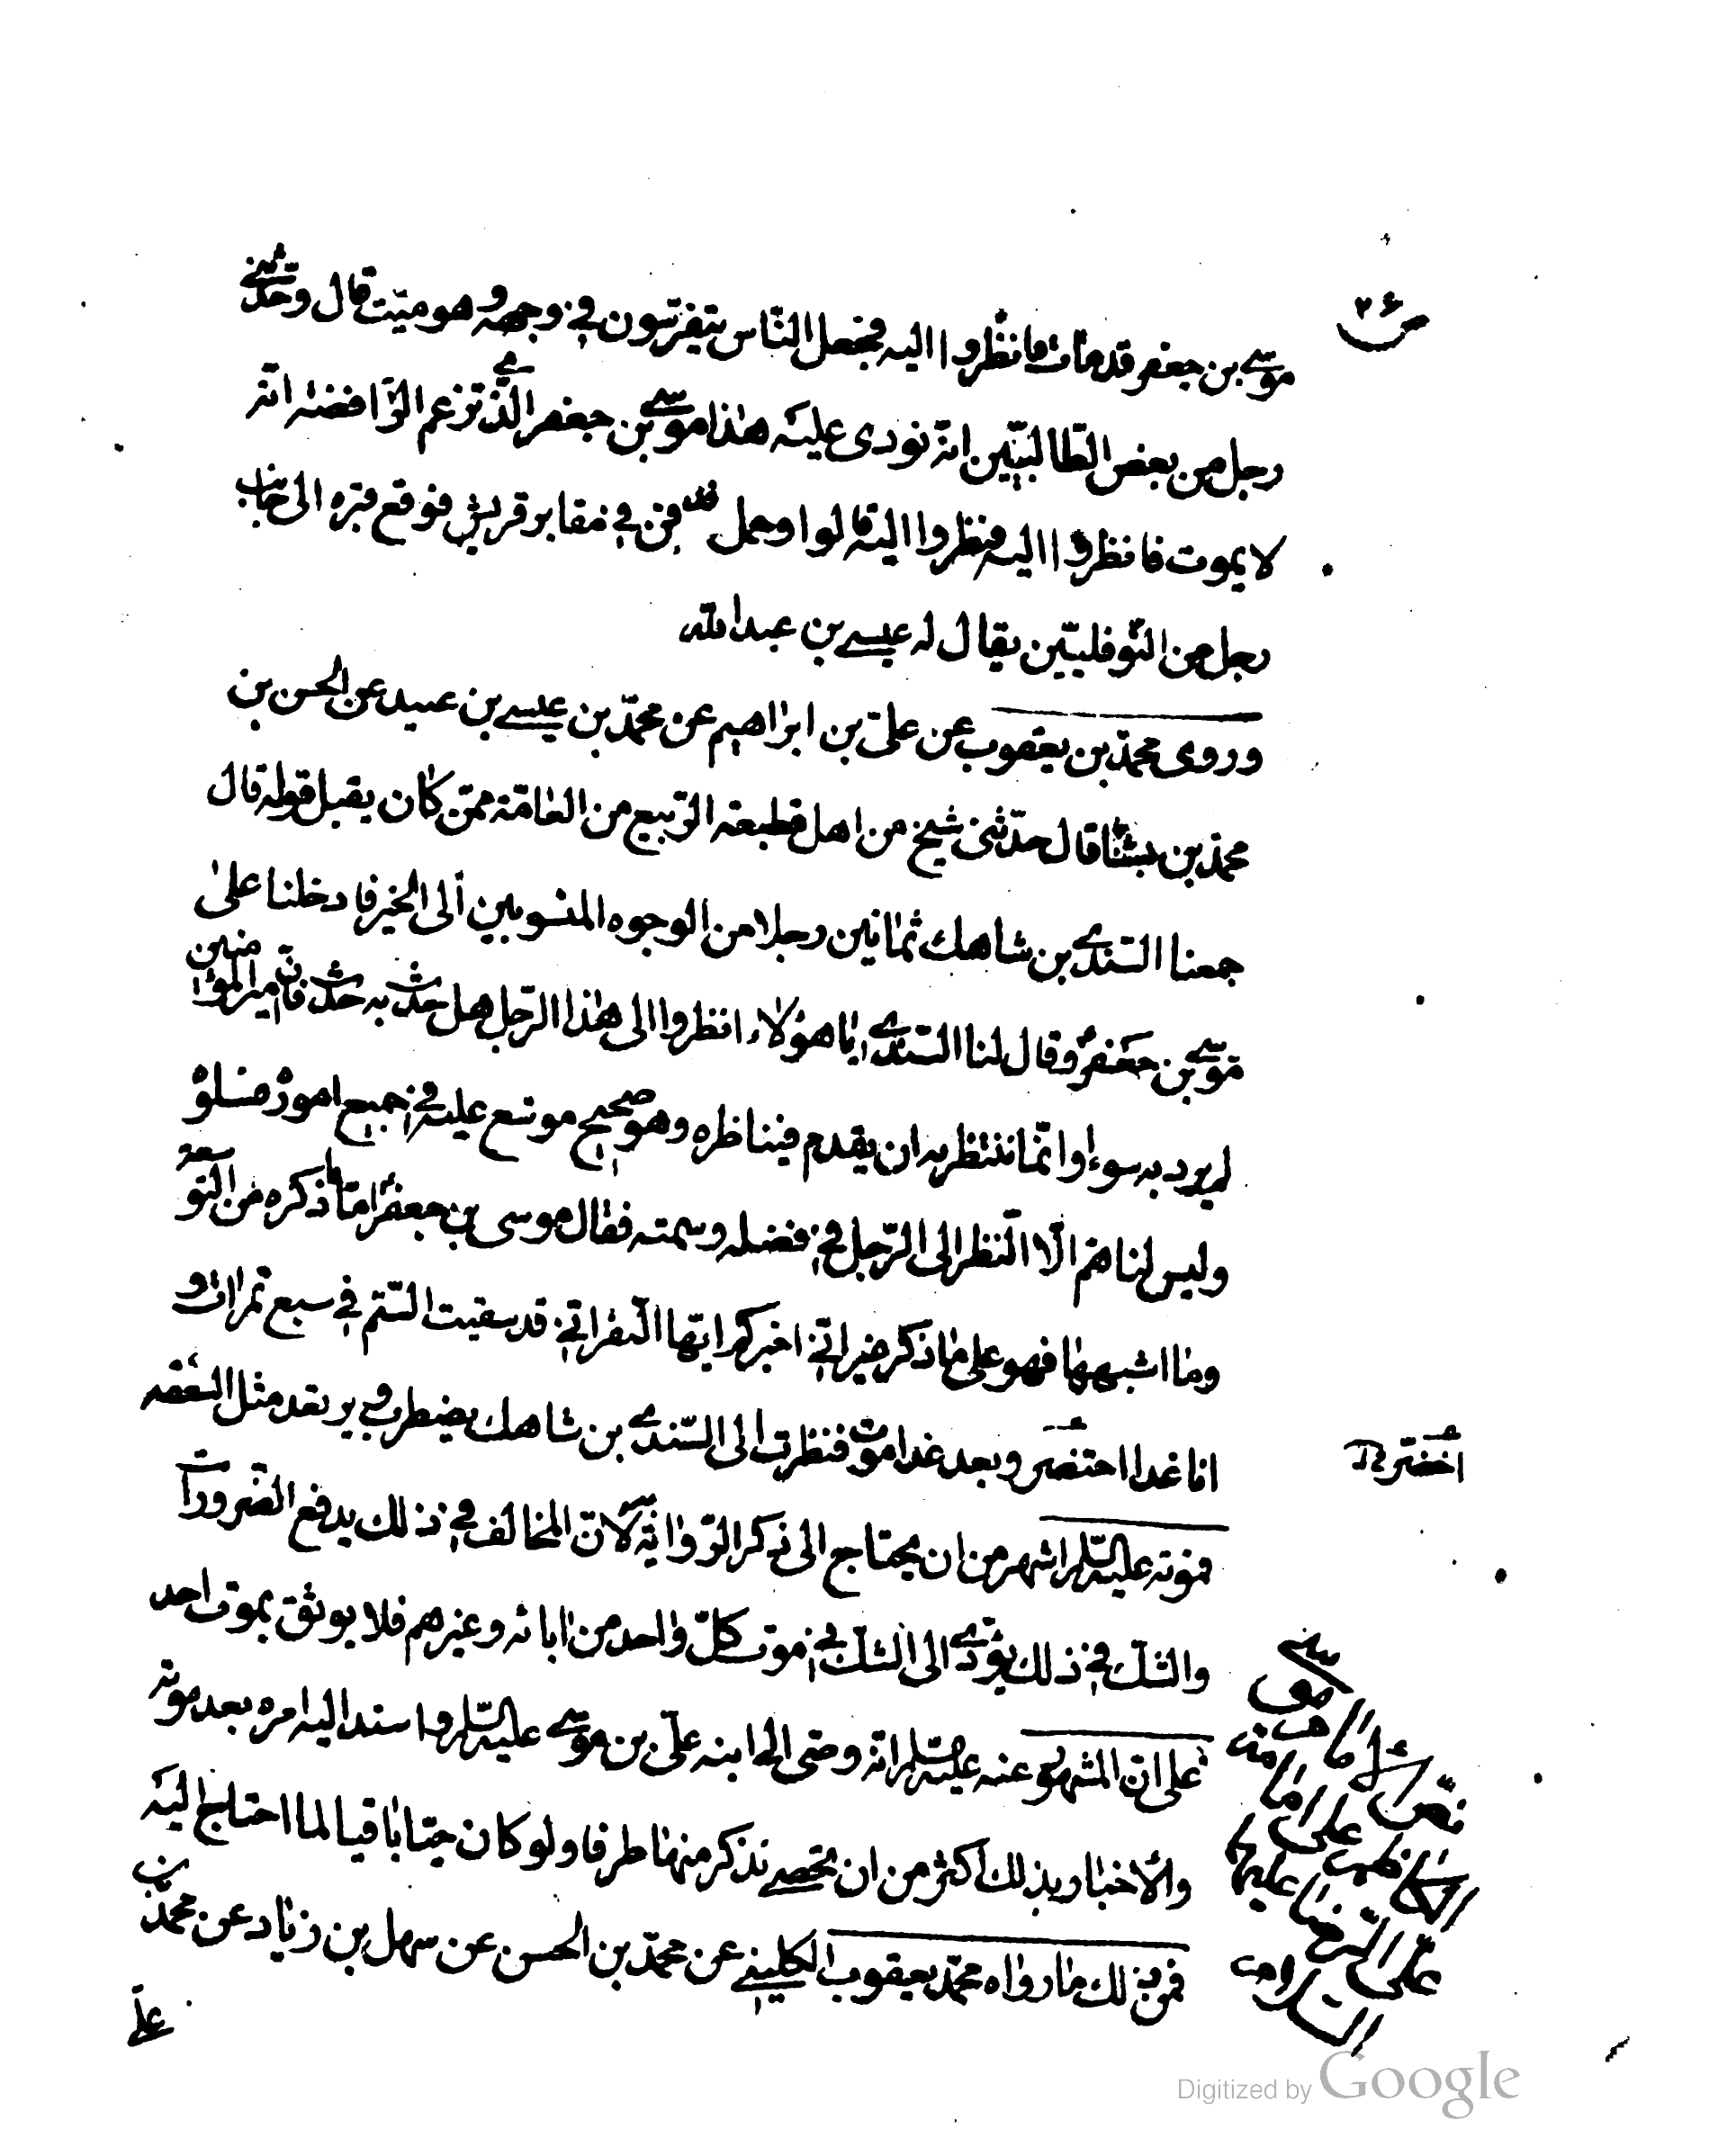 موسى بن جعفر قد مات فانظروا اليه فجعل الناس يتفرسون في وجهه وهو ميت قال وحدثني
رجل من بعض الطالبيين انه نودى عليه هذا موسى بن جعفر الذي تزعم الرافضة انه
لا يموت فانظروا اليه فنظروا اليه قالوا وحمل فدفن في مقابر قريش فوقع قبره الى جانب
رجل من النوفليين يقال له عيسى بن عبد الله
وروى محمد بن يعقوب عن علي بن ابراهيم عن محمد بن عيسى بن عبيد عن الحسن بن
محمد بن بشار قال حدثني شيخ من اهل قطيعة الربيع من العامة ممن كان يقبل قوله قال
جمعنا السندي بن شاهك ثمانين رجلا من الوجوه المنسوبين الى الخير فادخلنا على
موسى بن جعفر وقال لنا السندي يا هؤلاء انظروا الى هذا الرجل هل حدث به حدث فان امير المؤمنين
لم يرد به سوء وانما ننتظر به ان يقدم فيناظره وهو صحيح موسع عليه في جميع اموره فسلوه
وليس لنا هم الا النظر الى الرجل في فضله وسمته فقال موسى بن جعفر اما ما ذكره من التوسعة
وما اشبهها فهو على ما ذكر غير اني اخبركم ايها النفر اني قد سقيت السم في سبع تمرات و
انا غدا احتضر وبعد غد اموت فنظرت الى السندي بن شاهك يضطرب ويرتعد مثل السعفة
فموته عليه السلم اشهر من ان يحتاج الى ذكر الرواية لان المخالف في ذلك يدفع الضرورات
والشك في ذلك يؤدي الى الشك في موت كل واحد من ابائه وغيرهم فلا يوثق بموت احد
على ان المشهور عنه عليه السلم انه وصى الى ابنه علي بن موسى عليه السلم واسند اليه امره بعد موته
والاخبار بذلك اكثر من ان تحصى نذكر منها طرفا ولو كان حيا باقيا لما احتاج اليه
فمن ذلك ما رواه محمد بن يعقوب الكليني عن محمد بن الحسن عن سهل بن زياد عن محمد بن
علي
نص الامام موسى
الكاظم على امامة
علي الرضا عليهما
السلام
Digitized by Google